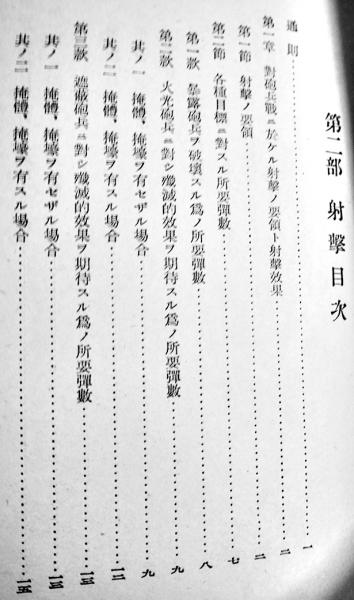 第二部 射擊目次
通則……一
第一章 對砲兵戰ニ於ケル射擊ノ要領ト射擊效果……二
第一節 射擊ノ要領……二
第二節 各種目標ニ對スル所要彈數……七
第一款 暴露砲兵ヲ破壞スル爲ノ所要彈數……八
第二款 火光砲兵ニ對シ殲滅的效果ヲ期待スル爲ノ所要彈數……九
其ノ一 掩體、掩壕ヲ有セザル場合……九
其ノ二 掩體、掩壕ヲ有スル場合……一二
第三款 遮蔽砲兵ニ對シ殲滅的效果ヲ期待スル爲ノ所要彈數……一三
其ノ一 掩體、掩壕ヲ有セザル場合……一三
其ノ二 掩體、掩壕ヲ有スル場合……一五